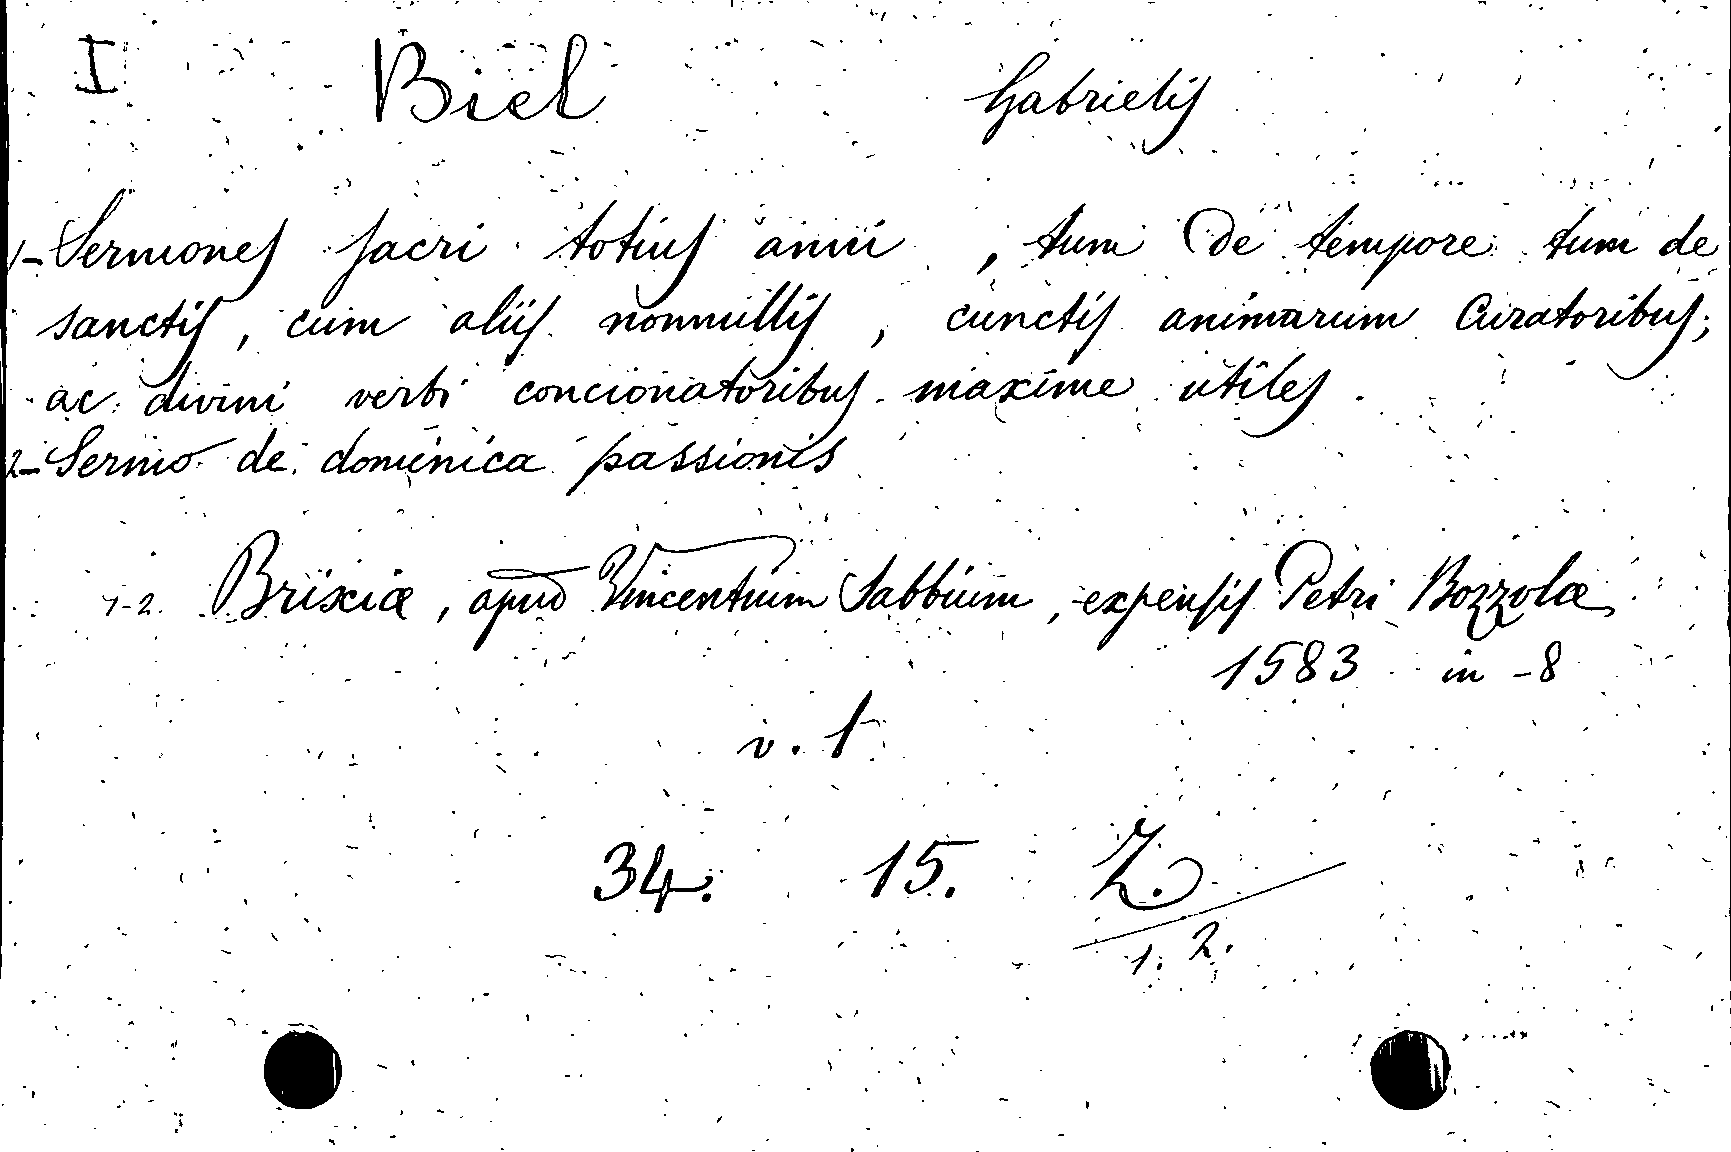 I Biel Gabrielis
1- Sermones sacri totius annii , tum de tempore tum de
sanctis, cum aliis nonnullis, cunctis animarum Curatoribus;
ac divini verbi concionatoribus maxime utiles.
2- Sermo de dominica passionis
1-2. Brixiæ, apud Vincentium Sabbium, expensis Petri Bozzolæ
1583 in -8
v. 1
34. 15. Z.
1. 2.